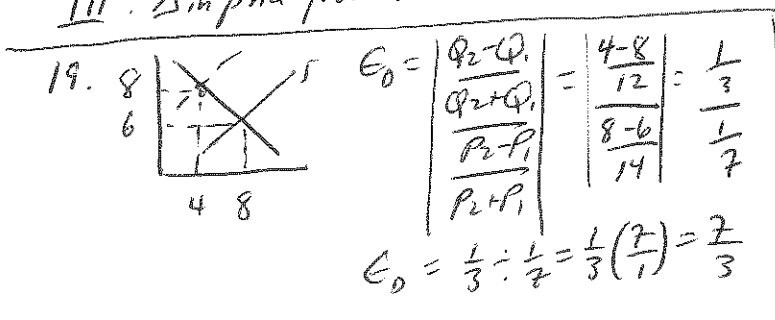 III. Simple
19. 8 6 4 8 S
ϵ_D = | (Q₂-Q₁)/(Q₂+Q₁) / (P₂-P₁)/(P₂+P₁) | = | (4-8)/12 / (8-6)/14 | = 1/3 / 1/7
ϵ_D = 1/3 ÷ 1/7 = 1/3 (7/1) = 7/3